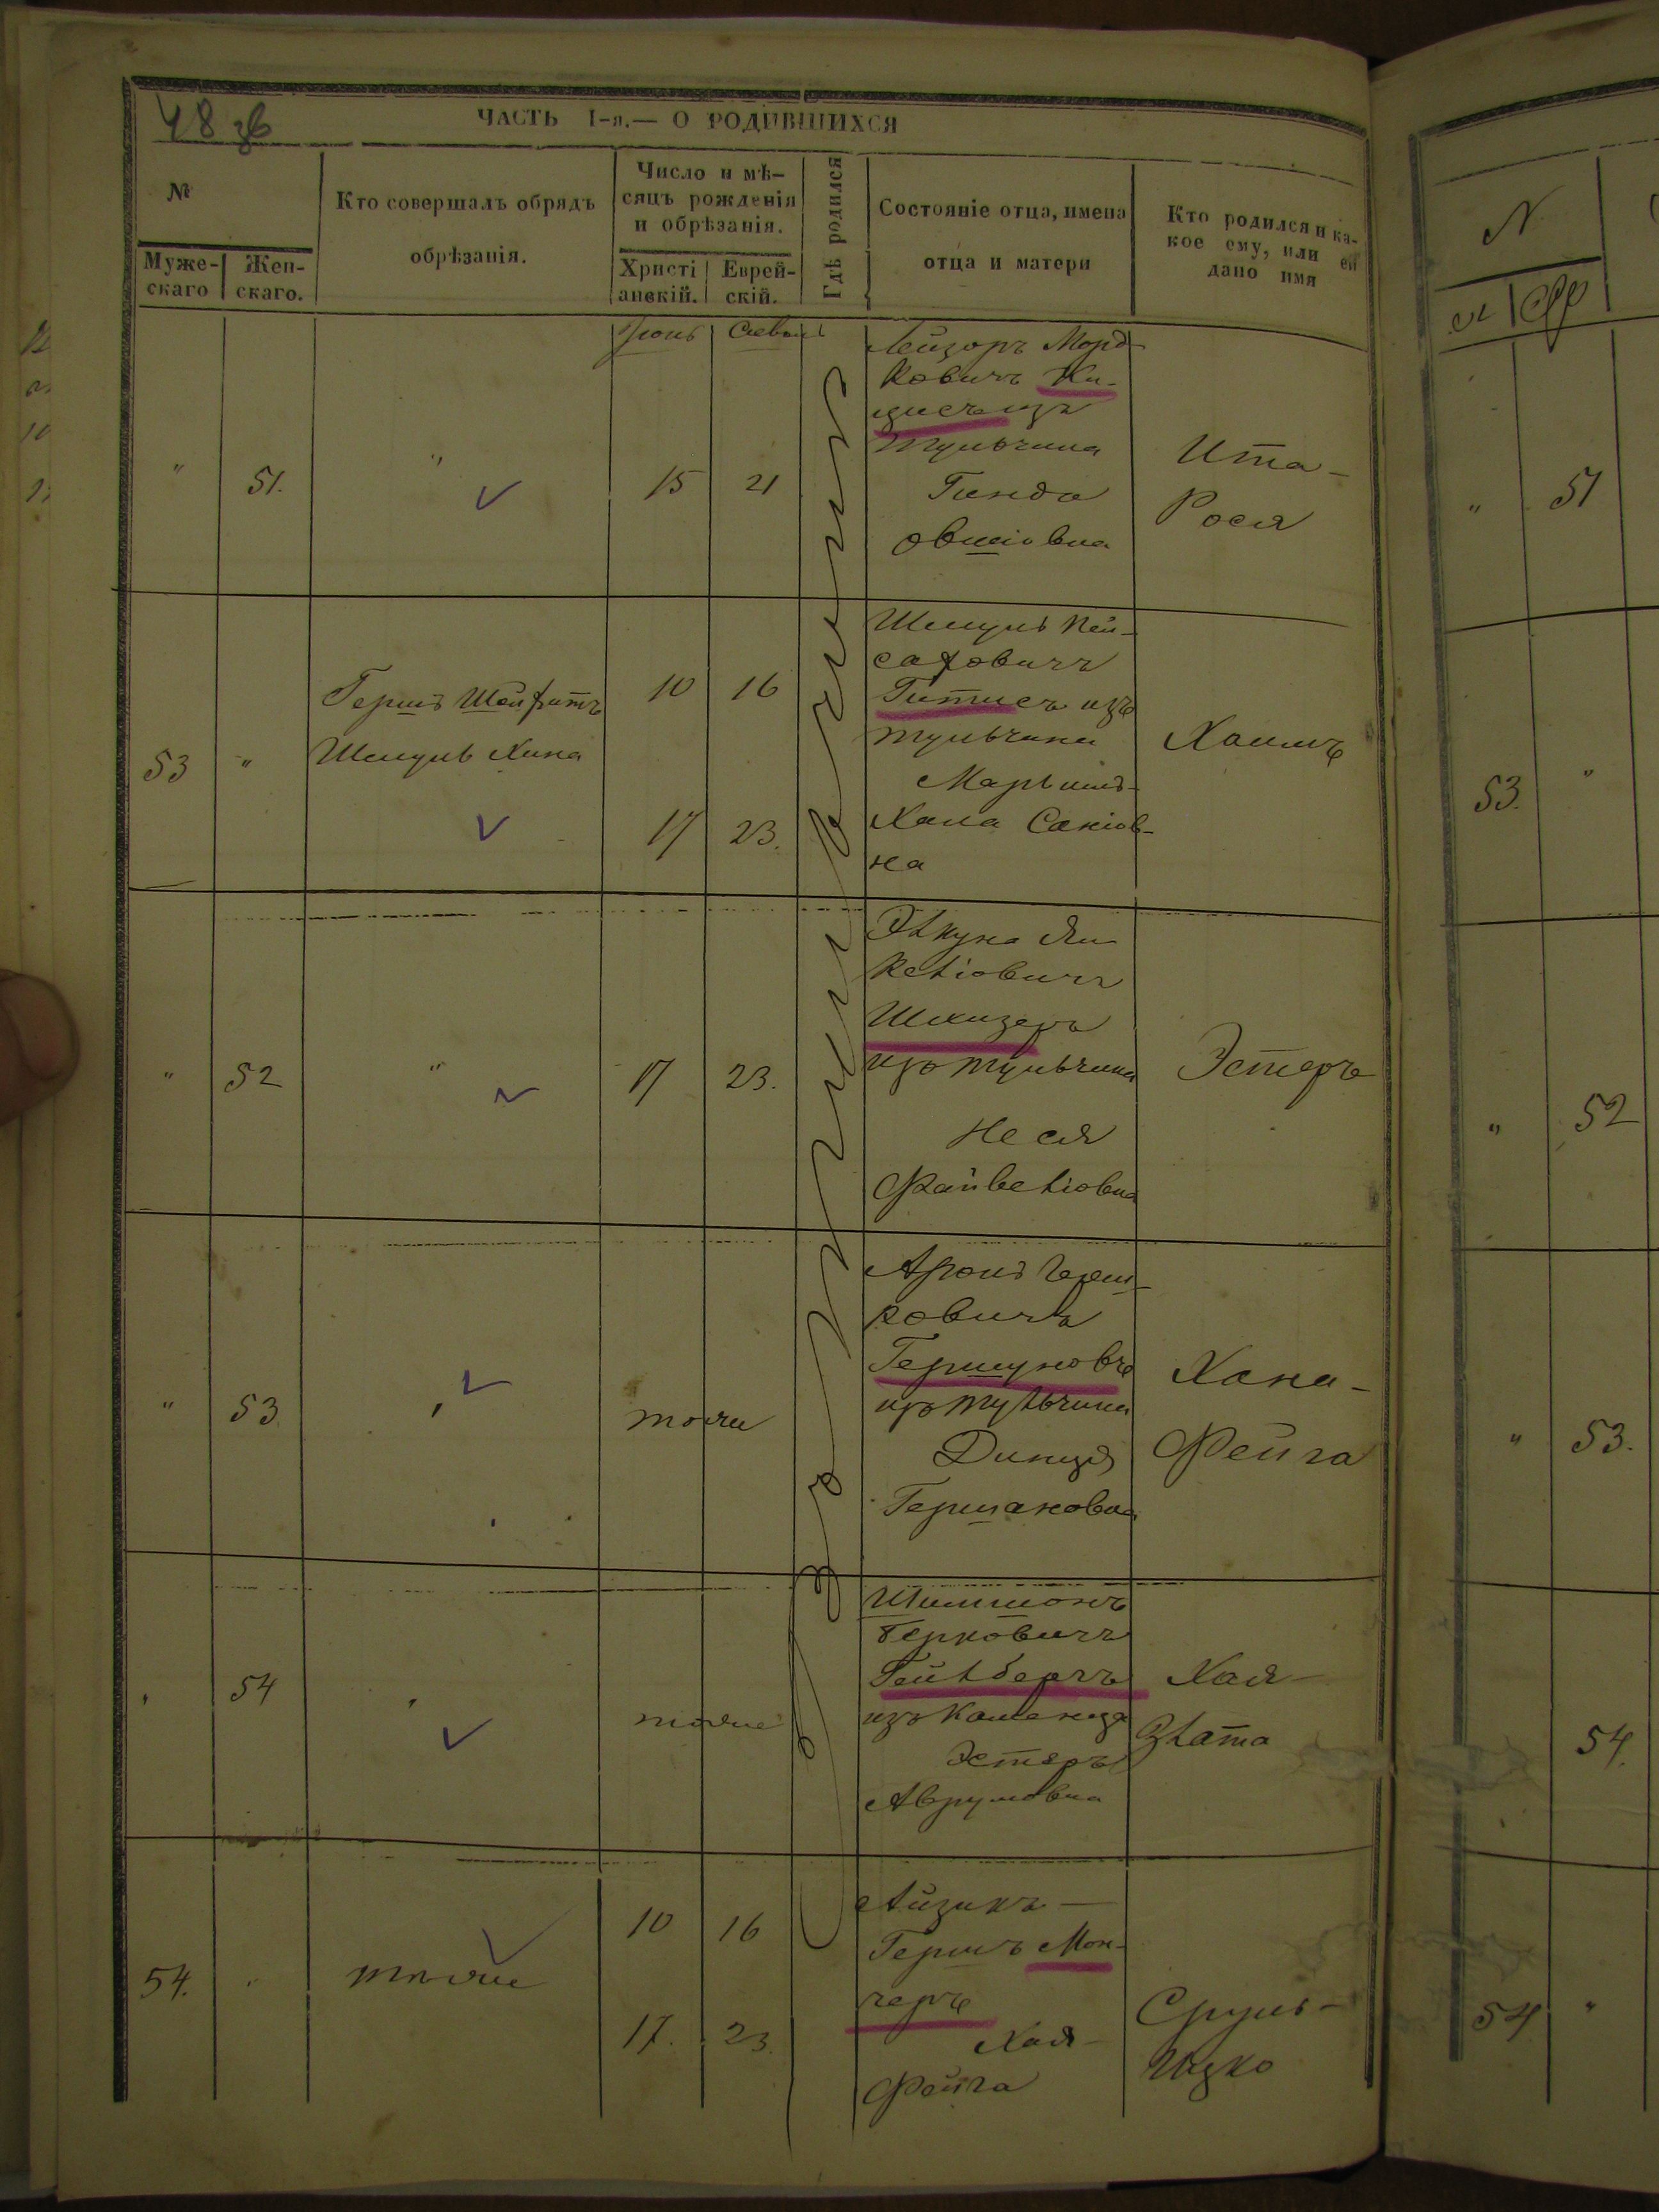 48 зв
ЧАСТЬ I-я.— О РОДИВШИХСЯ
№
Муже-
скаго
Жен-
скаго.
Кто совершалъ обрядъ
обрѣзанія.
Число и мѣ-
сяцъ рожденія
и обрѣзанія.
Христі
анскій.
Еврей-
скій.
Гдѣ родился
Состояніе отца, имена
отца и матери
Кто родился и ка-
кое ему, или ей
дано имя
Іюнь
Сивань
"
51.
"
15
21
Лейзоръ Морд-
ковичъ
изъ
Тульчина
Гинда
Овшіовна
Ита-
Рося
53
"
Гершъ
Шмуль Хина
10
16
17
23.
Шмуль Пей-
саховичъ
Гитисъ изъ
Тульчина
Марьимъ-
Хана
на
Хаимъ
"
52
"
17
23.
Элкуна Ян
келіовичъ
изъ Тульчина
Неся
Файвеліовна
Эстеръ
"
53
тоже
Аронъ Герш-
ковичъ
Гершуновъ
изъ Тульчина
Динця
Гершановна
Хана-
Фейга
54
тоже
Шимшонъ
Берковичъ
Гейлбергъ
изъ Каменца
Эстеръ
Аврумовна
Хая-
Злата
54.
тоже
10
16
17.
23.
Айзикъ-
Гершъ Мон-
черъ
Хая-
Фейга
Сруль-
Ицко
N
"
51
53.
"
"
52
"
53.
54.
54
"